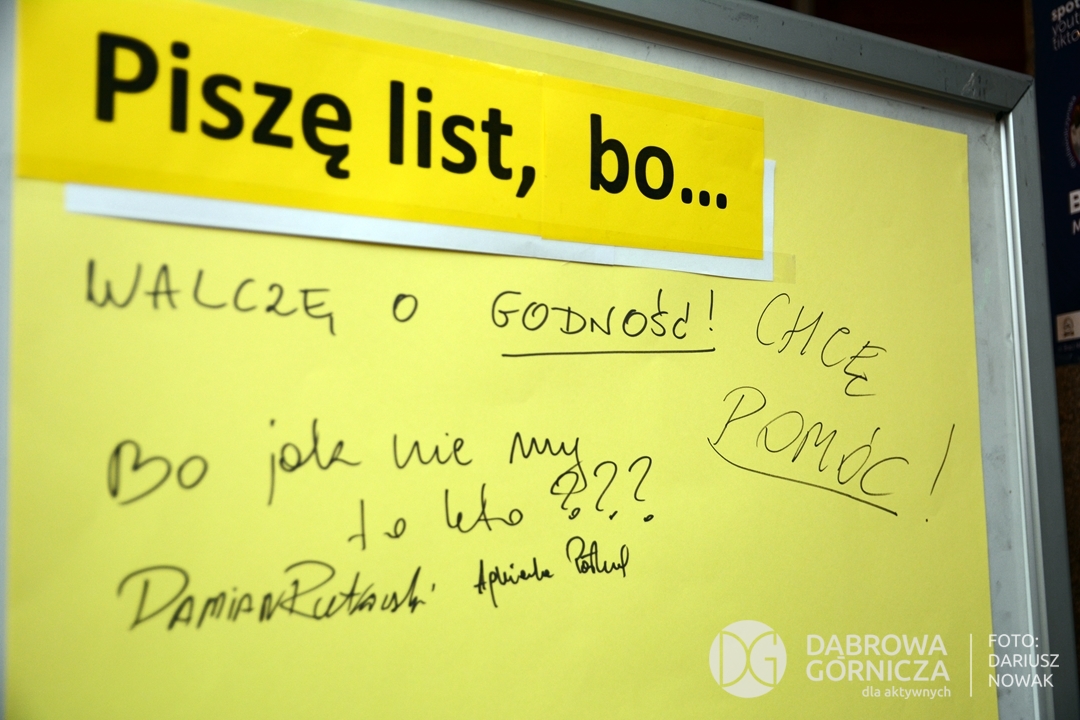 Piszę list, bo...
WALCZĘ O GODNOŚĆ!
CHCĘ
POMÓC!
Bo jak nie my
to kto ???
Damian Rutkowski Agnieszka
DĄBROWA
GÓRNICZA
dla aktywnych
FOTO:
DARIUSZ
NOWAK
spot
yout
tikto